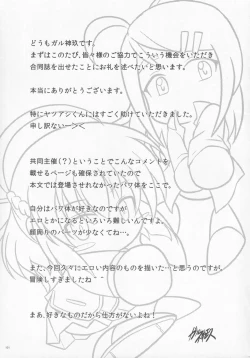 どうもガル神玖です。
まずはこのたび、皆々様のご協力でこういう機会をいただき
合同誌を出せたことにお礼を述べたいと思います。
本当にありがとうございます。
特にヤツアシくんにはすごく助けていただきました。
申し訳ないーンぐ
共同主催(?)ということでこんなコメントを
載せるページも確保されていたので
本文では登場させれなかったバフ体をここで。
自分はバフ体が好きなのですが
エロとかになるといろいろ難しいんですよ。
顔周りのパーツが少なくてね…。
また、今回久々にエロい内容のものを描いた…と思うのですが、
冒険しすぎましたね~
まぁ、好きなものだから仕方がないよね!